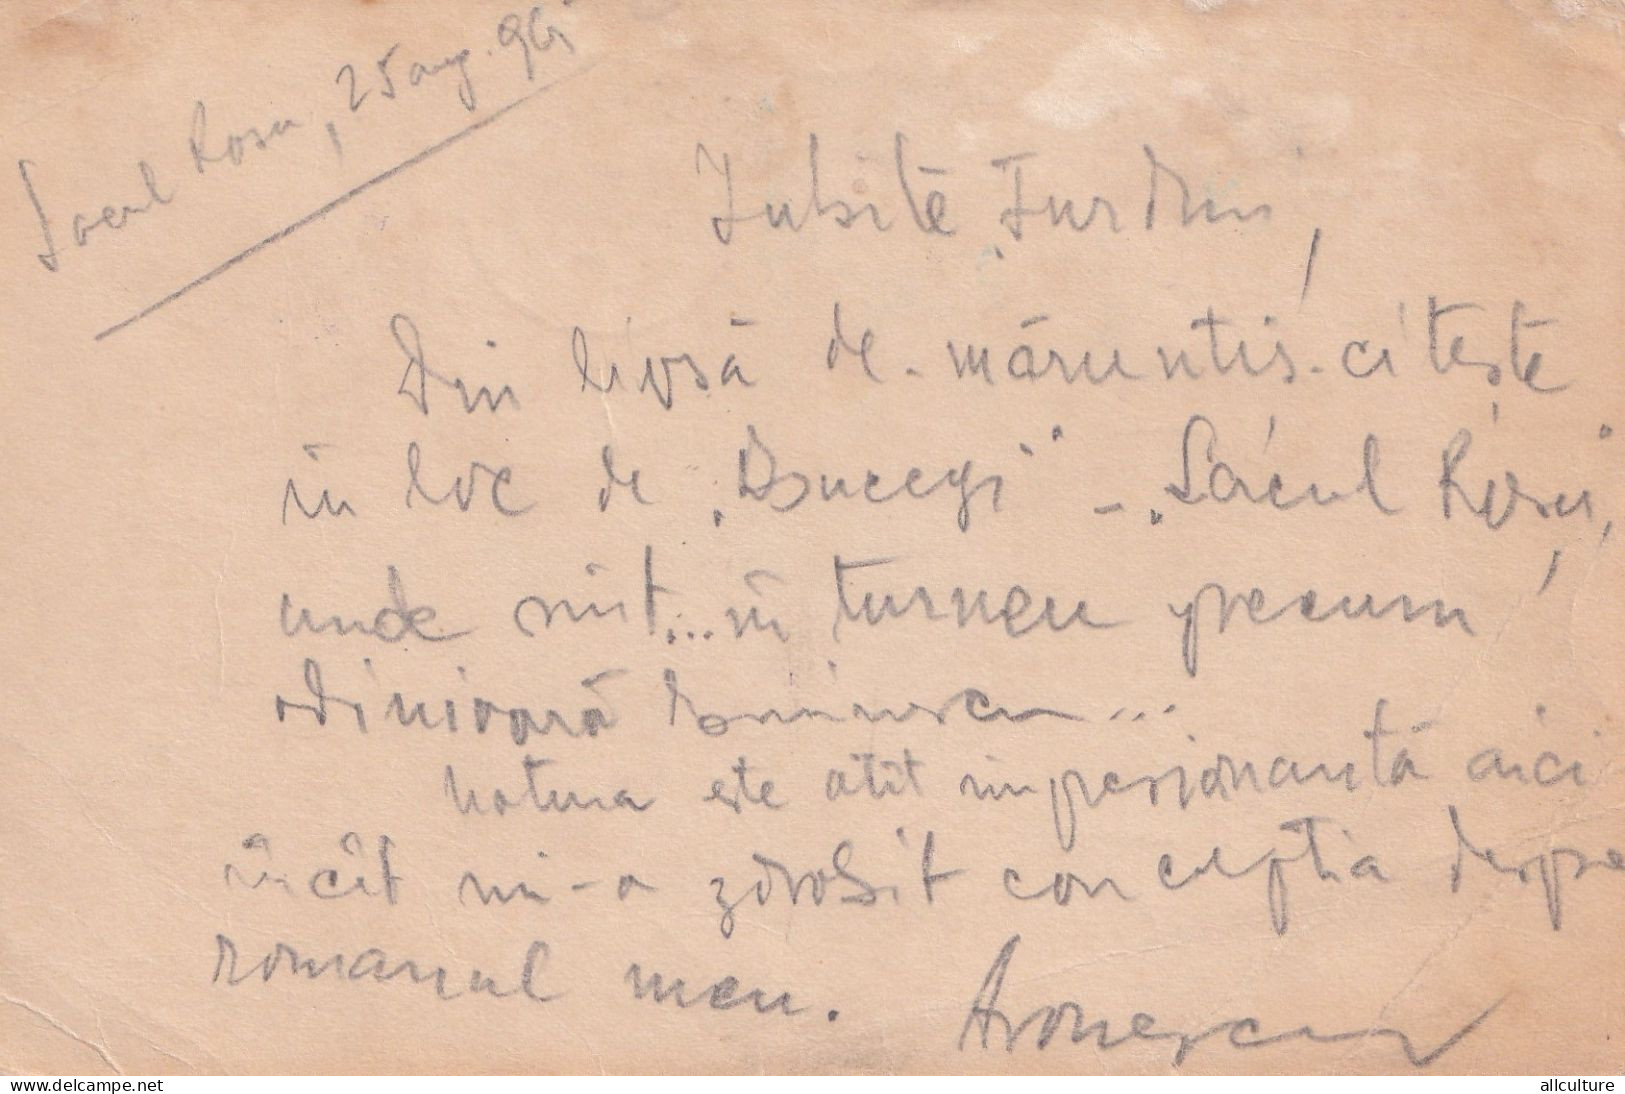 Lacul Rosu, 25 aug. 965
Iubite Furdui,
Din lipsă de mărunțis - citește
în loc de „Bucegi" - „Lacul Roșu",
unde sînt... în turneu precum
odinioară Eminescu...
Natura este atît impresionantă aici
încît mi-a zdrobit concepția despre
romanul meu.
www.delcampe.net
allculture